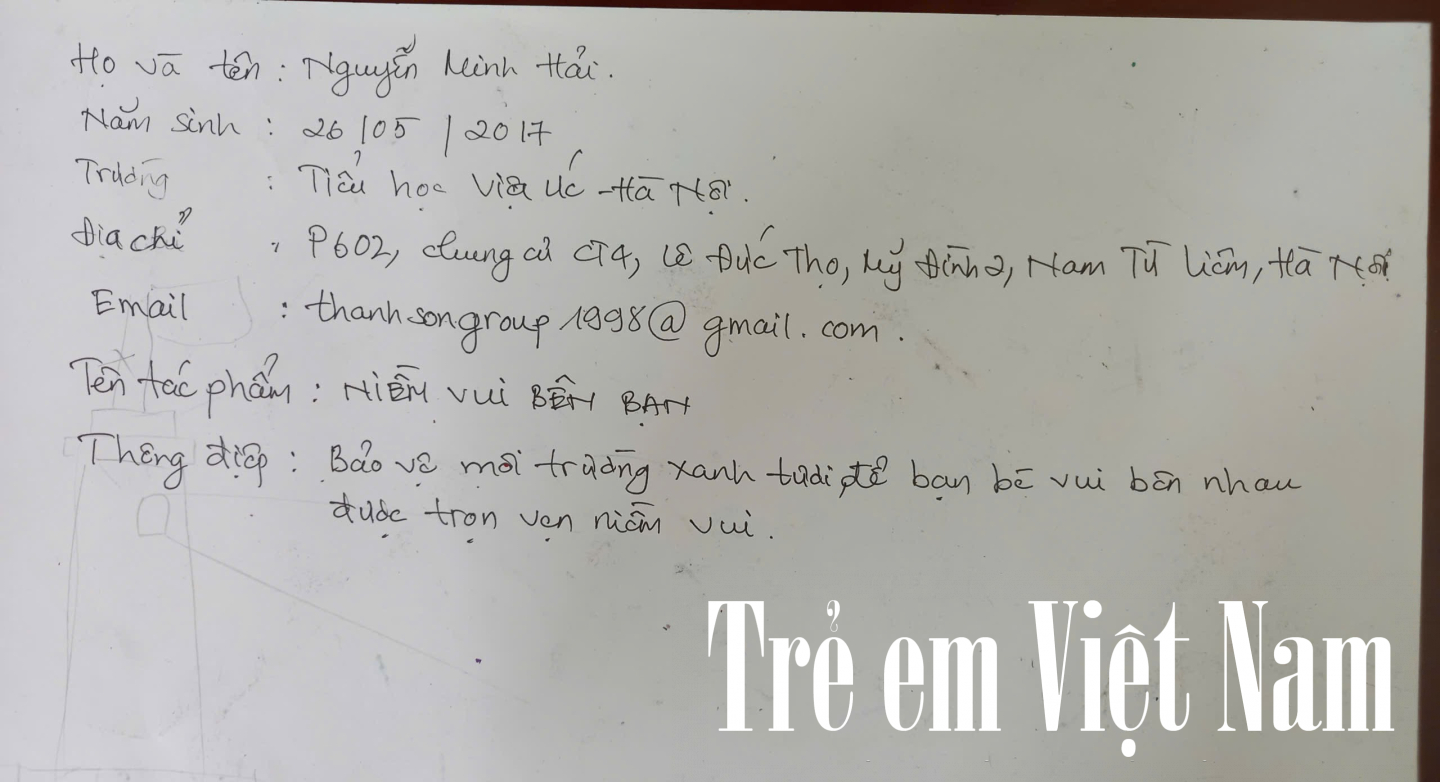 Họ và tên : Nguyễn Minh Hải.
Năm sinh : 26/05/2017
Trường : Tiểu học Việt Úc - Hà Nội.
Địa chỉ : P602, chung cư CT4, Lê Đức Thọ, Mỹ Đình 2, Nam Từ Liêm, Hà Nội
Email : thanhsongroup1998@gmail.com.
Tên tác phẩm : NIỀM VUI BÊN BẠN
Thông điệp : Bảo vệ môi trường xanh tươi, để bạn bè vui bên nhau
được trọn vẹn niềm vui.
Trẻ em Việt Nam